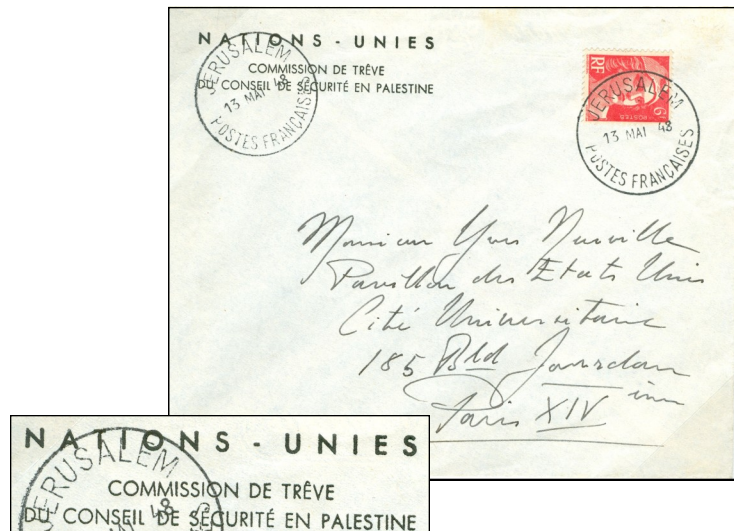 NATIONS - UNIES
COMMISSION DE TRÊVE
DU CONSEIL DE SÉCURITÉ EN PALESTINE
JERUSALEM
13 MAI 48
POSTES FRANÇAISES
RF
6
POSTES
JERUSALEM
13 MAI 48
POSTES FRANÇAISES
Monsieur Yves Neuville
Pavillon des Etats Unis
Cité Universitaire
185 Bld Jourdan
Paris XIV
NATIONS - UNIES
COMMISSION DE TRÊVE
DU CONSEIL DE SÉCURITÉ EN PALESTINE
JERUSALEM
48